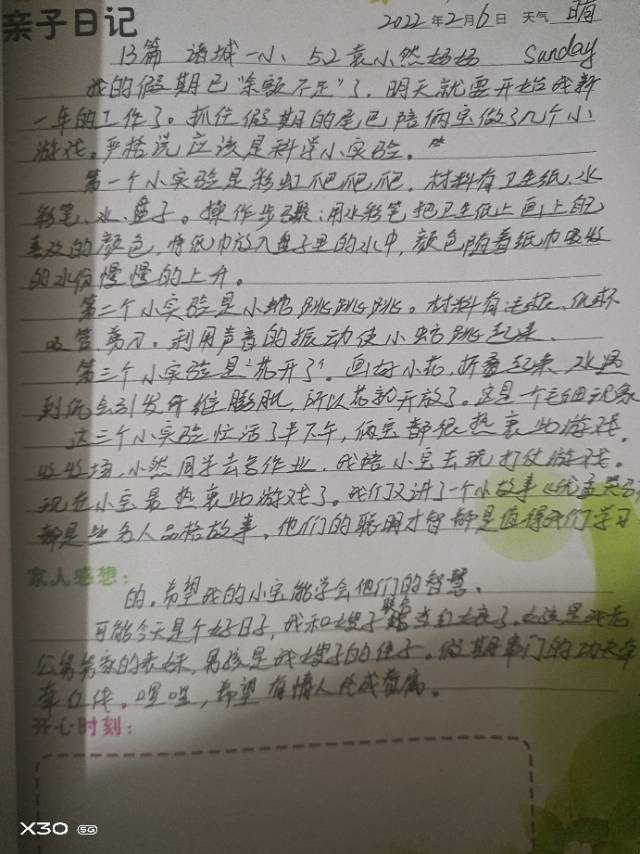 亲子日记 2022年2月6日 天气 晴
13篇 诸城一小 5.2袁小然妈妈 Sunday
我的假期已"余额不足"了,明天就要开始我新
一年的工作了。抓住假期的尾巴陪俩宝做了几个小
游戏。严格说应该是科学小实验。
第一个小实验是彩虹爬爬爬,材料有卫生纸、水
彩笔、水、盘子。操作步骤:用水彩笔把卫生纸上画上自己
喜欢的颜色,将纸巾放入盘子里的水中,颜色随着纸巾吸收
的水份慢慢的上升。
第二个小实验是小蛇跳跳跳。材料有毛根、纸杯
吸管剪刀。利用声音的振动使小蛇跳起来
第三个小实验是"花开了"。画好小花,折叠起来,水遇
到纸会引发纤维膨胀,所以花就开放了。这是一个毛细现象
这三个小实验忙活了半下午,俩宝都很热衷此游戏。
收收场,小然同学去写作业,我陪小宝去玩打仗游戏。
现在小宝最热衷此游戏了。我们又讲了一个小故事
都是些名人品格故事,他们的聪明才智都是值得我们学习
家人感想:
的。希望我的小宝能学会他们的智慧。
可能今天是个好日子,我和嫂子当红娘了。女孩是我老
公舅舅家的表妹,男孩是我嫂子的侄子。假期串门的功夫牵
牵红线。嘿嘿,希望有情人终成眷属。
开心时刻:
X30 5G